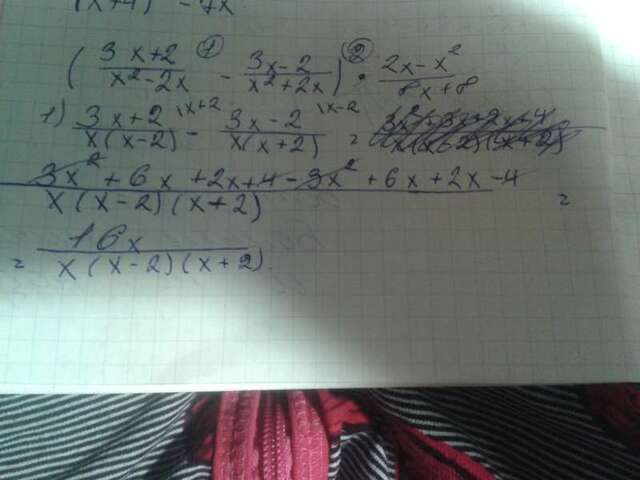 (x+4) - 7x
( \frac{3x+2}{x^2-2x} ① - \frac{3x-2}{x^2+2x} ) ② · \frac{2x-x^2}{8x+8}
1) \frac{3x+2}{x(x-2)} |x+2 - \frac{3x-2}{x(x+2)} |x-2 =
\frac{3x^2+6x+2x+4-3x^2+6x+2x-4}{x(x-2)(x+2)} =
= \frac{16x}{x(x-2)(x+2)}.